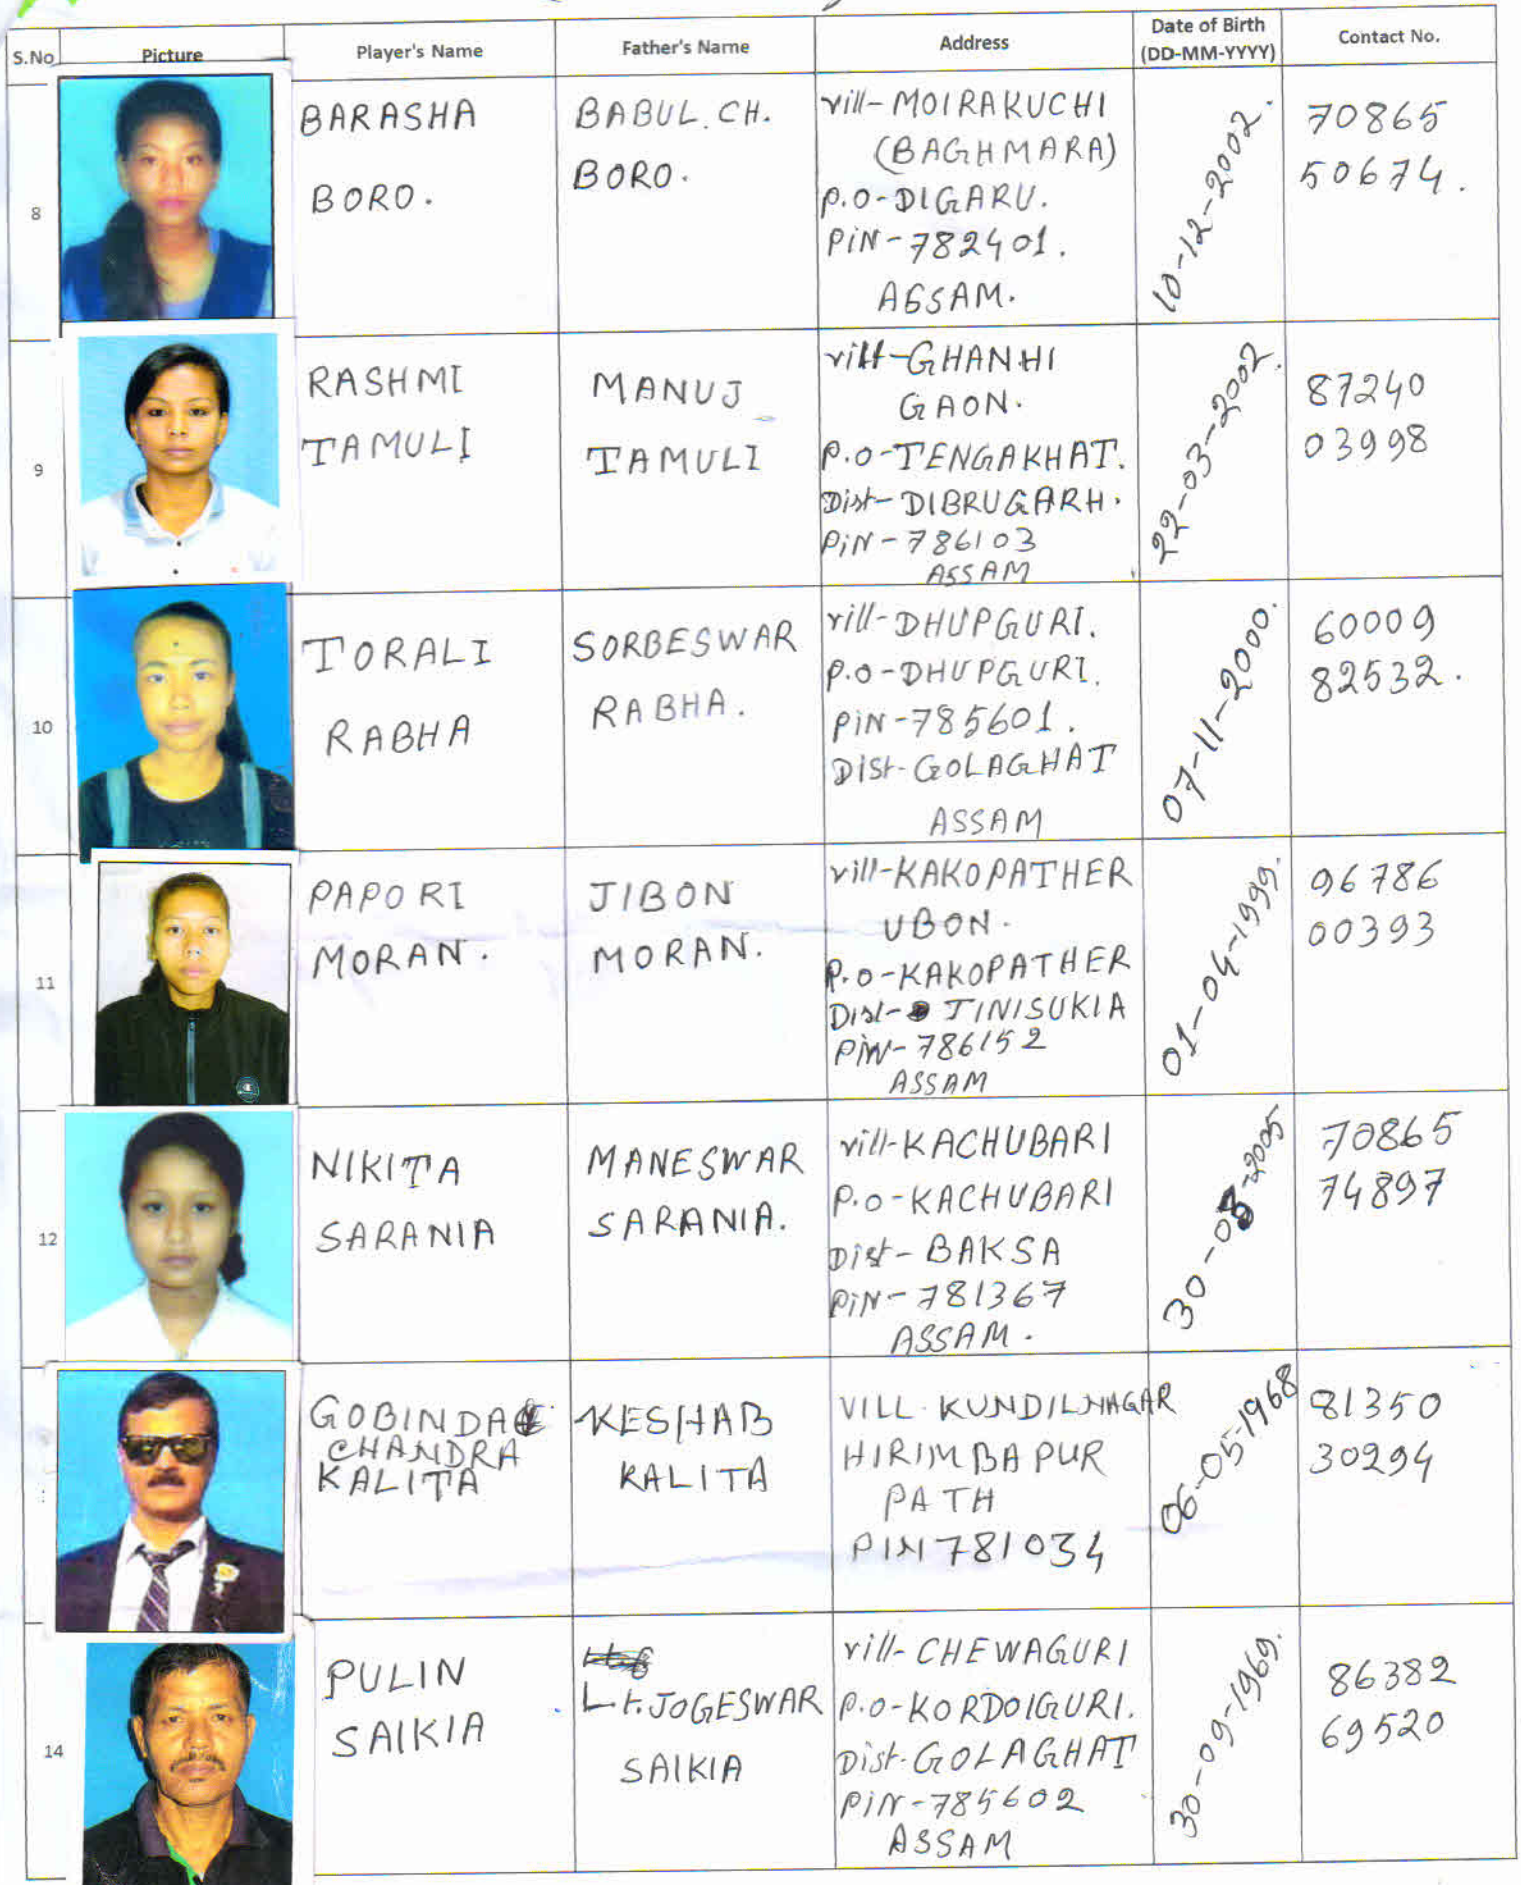 S.No Picture Player's Name Father's Name Address Date of Birth Contact No.
(DD-MM-YYYY)
8
BARASHA
BORO.
BABUL. CH.
BORO.
vill-MOIRAKUCHI
(BAGHMARA)
P.O-DIGARU.
PIN-782401.
ASSAM.
10-12-2002.
70865
50674.
9
RASHMI
TAMULI
MANUJ
TAMULI
GAON.
P.O-TENGAKHAT.
Dist-DIBRUGARH.
PIN-786103
ASSAM
22-03-2002.
87240
03998
10
TORALI
RABHA
SORBESWAR
RABHA.
vill-DHUPGURI.
P.O-DHUPGURI.
PIN-785601.
Dist-GOLAGHAT
ASSAM
07-11-2000.
60009
82532.
11
PAPORI
MORAN.
JIBON
MORAN.
vill-KAKOPATHER
UBON.
P.O-KAKOPATHER
Dist- TINISUKIA
PIN-786152
ASSAM
01-04-1999.
96786
00393
12
NIKITA
SARANIA
MANESWAR
SARANIA.
vill-KACHUBARI
P.O-KACHUBARI
Dist-BAKSA
PIN-781367
ASSAM.
70865
74897
GOBINDA
CHANDRA
KALITA
KESHAB
KALITA
VILL. KUNDILNAGAR
HIRIMBAPUR
PATH
PIN 781034
06-05-1968
81350
30294
14
PULIN
SAIKIA
Lt. JOGESWAR
SAIKIA
vill-CHEWAGURI
P.O-KORDOIGURI.
Dist-GOLAGHAT
PIN-785602
ASSAM
30-09-1969.
86382
69520